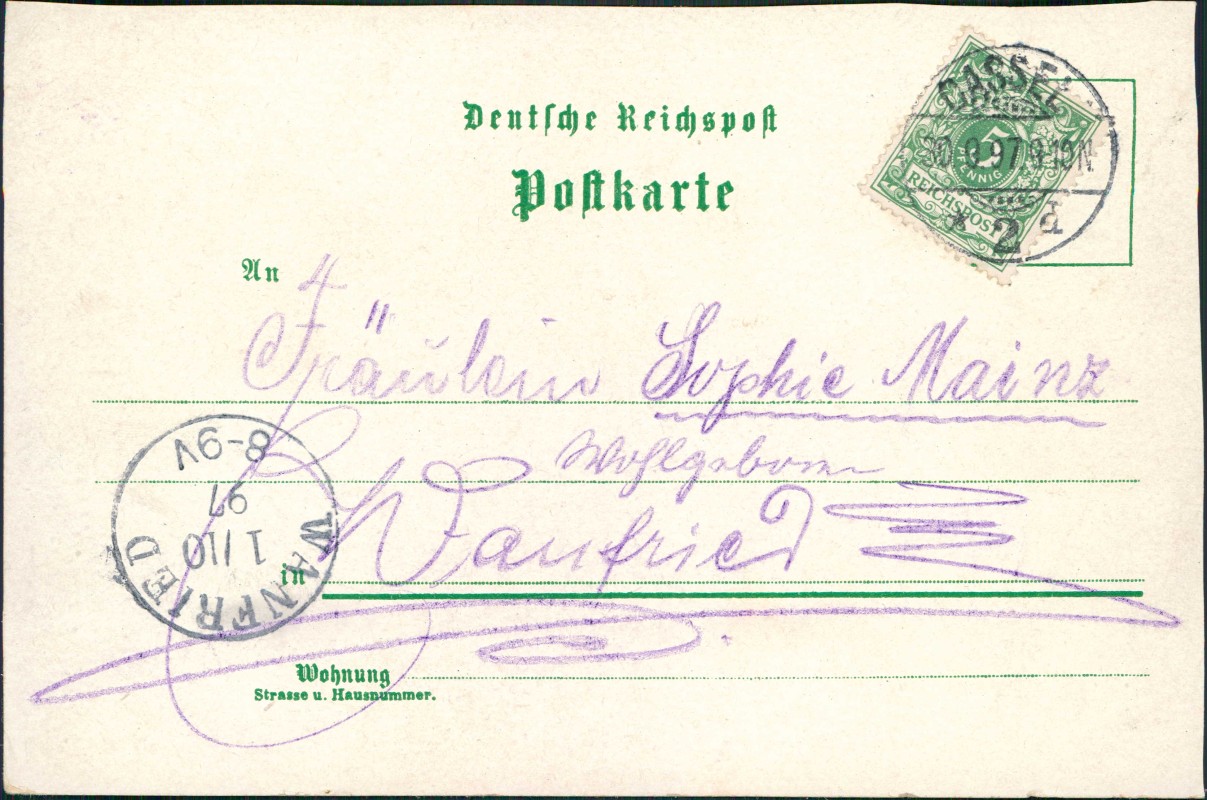 Deutsche Reichspost
Postkarte
CASSEL
30 9.97 9-10N
* 2 d
5
PFENNIG
REICHSPOST
An
Fräulein Sophie Mainz
Wohlgeboren
Wanfried
in
WANFRIED
1/10
97
8-9V
Wohnung
Strasse u. Hausnummer.